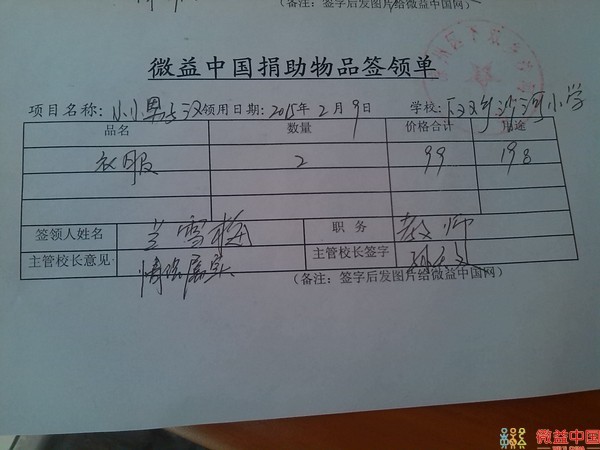 (备注:签字后发图片给微益中国网)
微益中国捐助物品签领单
项目名称:小小男子汉 领用日期:2015年2月9日 学校: 沙河小学
品名 数量 价格合计 用途
衣服 2 99 198
签领人姓名 兰雪梅 职务 教师
主管校长意见 情况属实 主管校长签字
(备注:签字后发图片给微益中国网)
微益中国